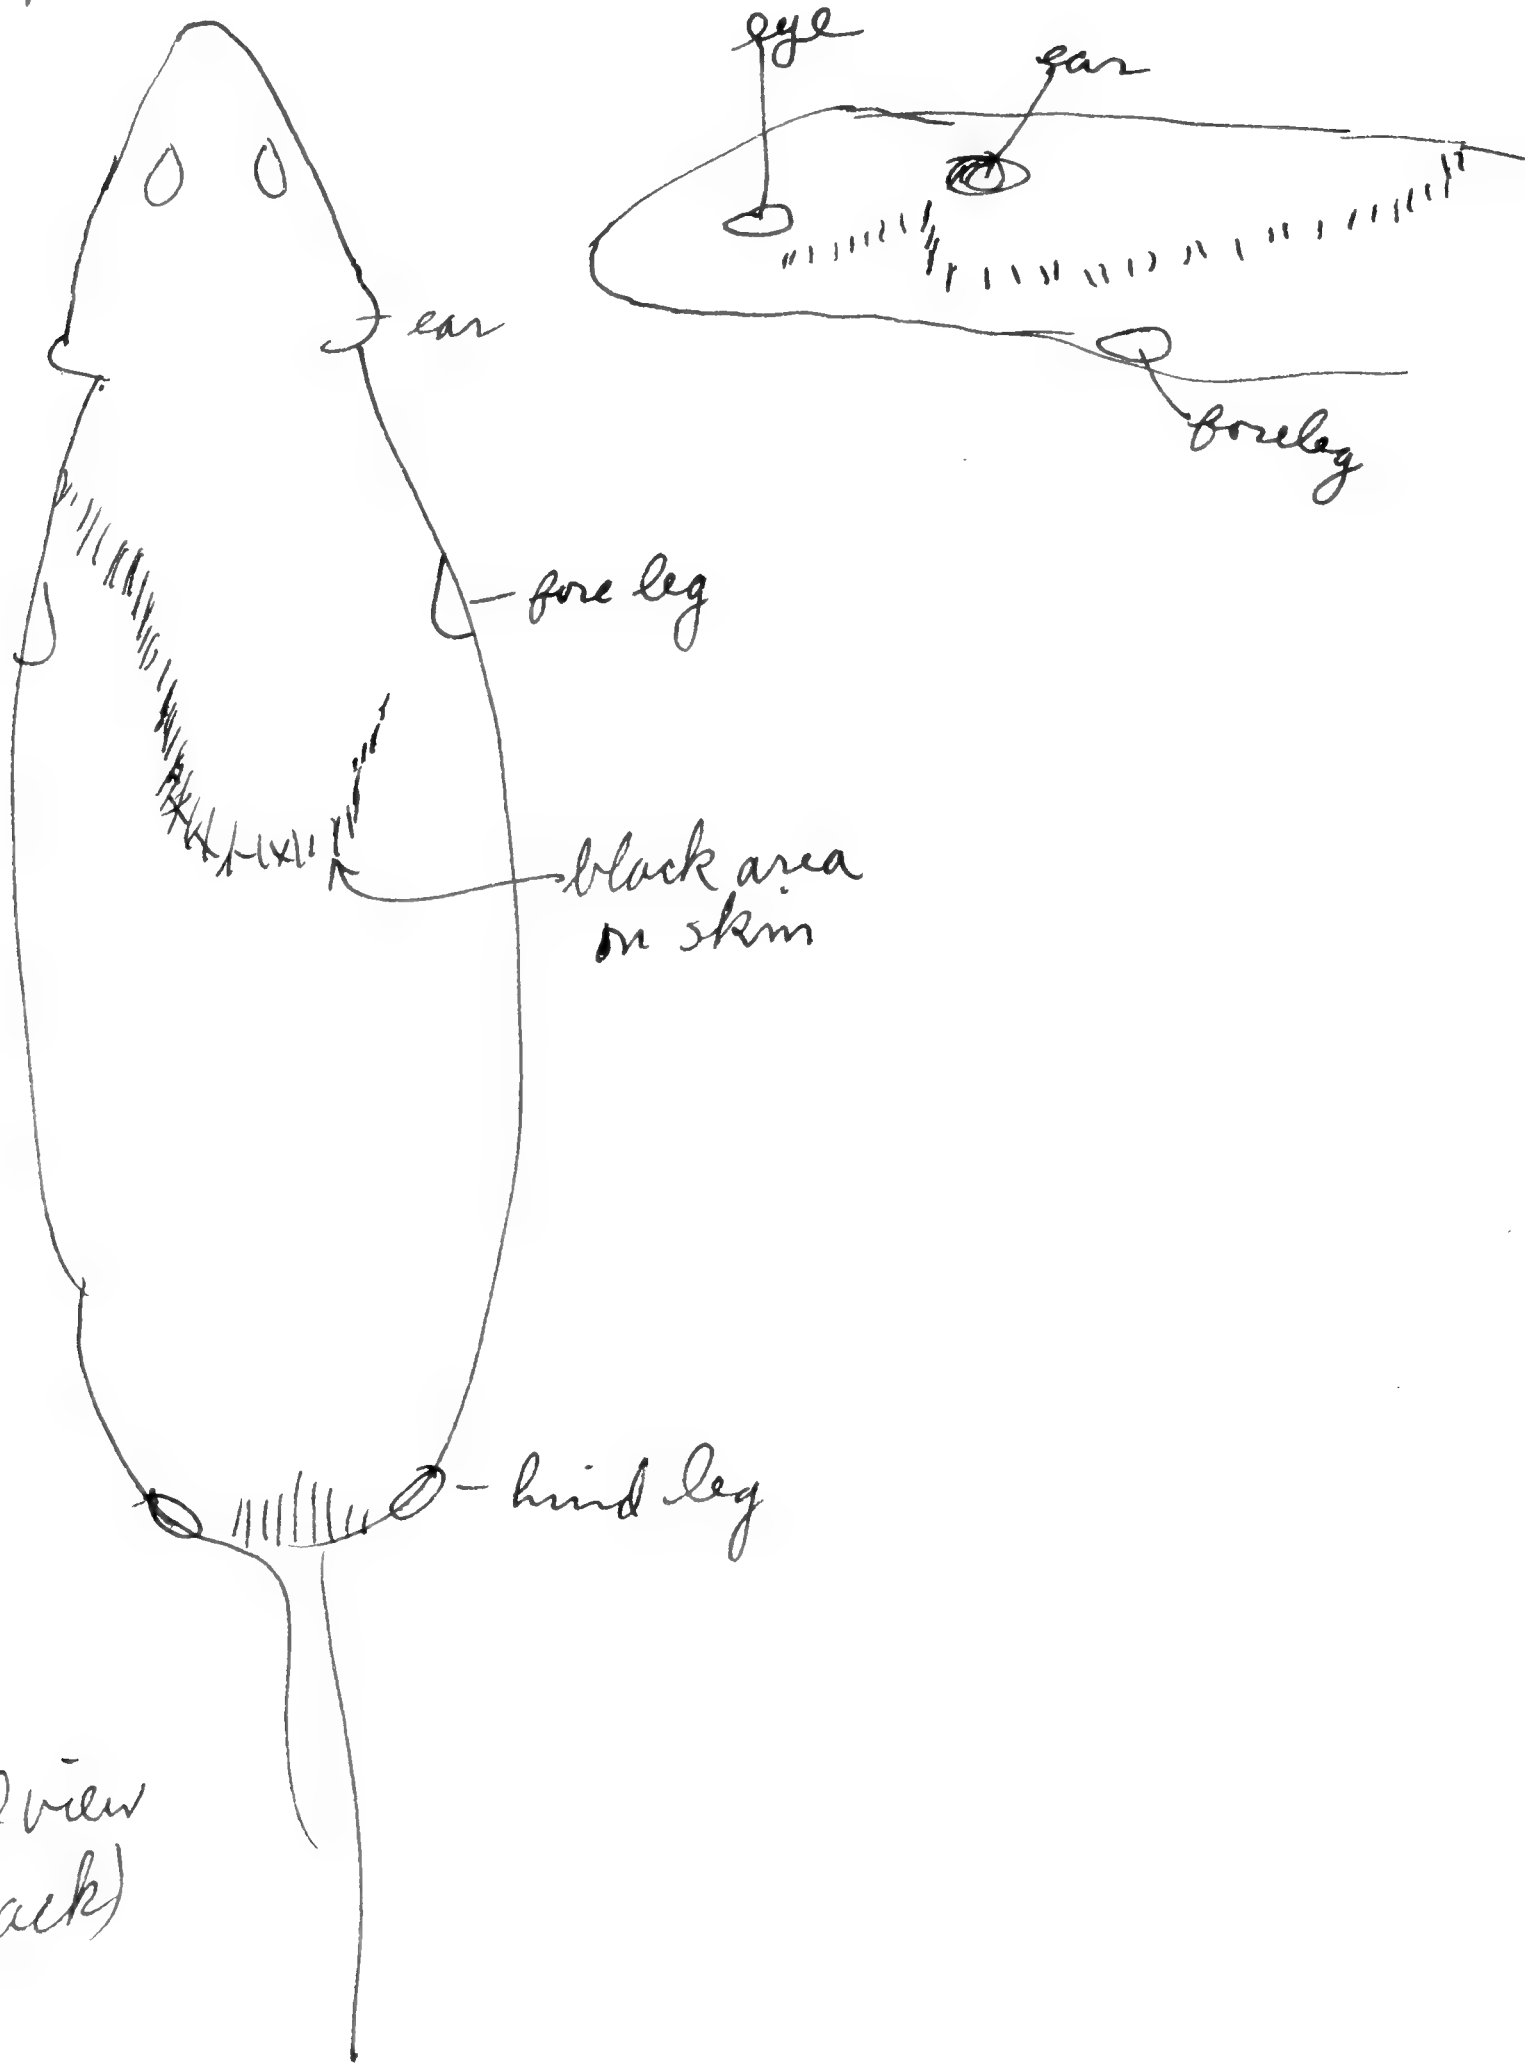 eye
ear
foreleg
ear
fore leg
black area
on skin
hind leg
view
ack)